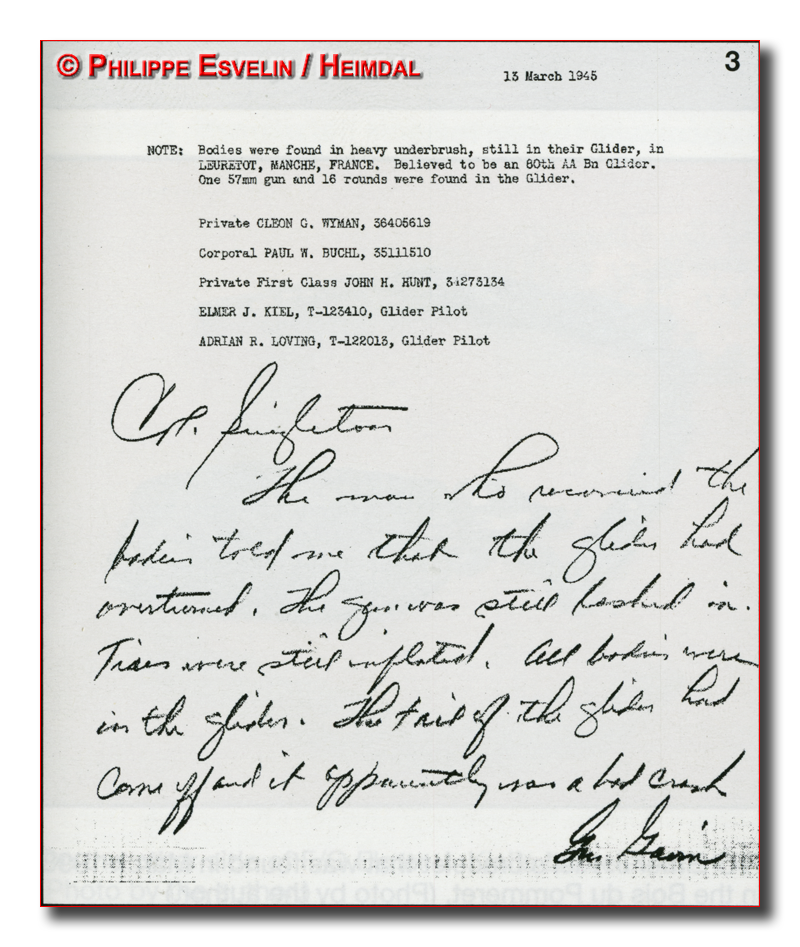 © PHILIPPE ESVELIN / HEIMDAL
13 March 1945
3
NOTE: Bodies were found in heavy underbrush, still in their Glider, in
LEURETOT, MANCHE, FRANCE. Believed to be an 80th AA Bn Glider.
One 57mm gun and 16 rounds were found in the Glider.
Private CLEON G. WYMAN, 36405619
Corporal PAUL W. BUCHL, 35111510
Private First Class JOHN H. HUNT, 34273134
ELMER J. KIEL, T-123410, Glider Pilot
ADRIAN R. LOVING, T-122013, Glider Pilot
Singleton
The man who recovered the
bodies told me that the glider had
overturned. The gun was still lashed in.
Tires were still inflated. All bodies were
in the glider. The tail of the glider had
come off and it apparently was a bad crash
Gavin
in the Bois du Pommeret. (Photo by the author)